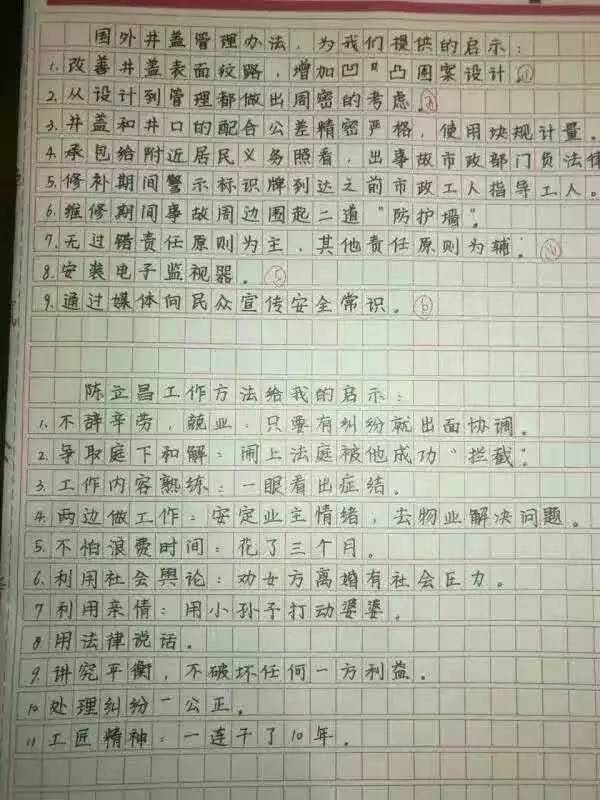 国外井盖管理办法，为我们提供的启示：
1.改善井盖表面纹路，增加凹凸图案设计。
2.从设计到管理都做出周密的考虑。
3.井盖和井口的配合公差精密严格，使用块规计量。
4.承包给附近居民义务照看，出事故市政部门负法律
5.修补期间警示标识牌到达之前市政工人指导工人。
6.维修期间事故周边围起二道“防护墙”。
7.无过错责任原则为主，其他责任原则为辅。
8.安装电子监视器。⑤
9.通过媒体向民众宣传安全常识。⑥
陈立昌工作方法给我的启示：
1.不辞辛劳，兢业：只要有纠纷就出面协调。
2.争取庭下和解：闹上法庭被他成功“拦截”
3.工作内容熟练：一眼看出症结。
4.两边做工作：安定业主情绪，去物业解决问题。
5.不怕浪费时间：花了三个月。
6.利用社会舆论：劝女方离婚有社会压力。
7 利用亲情：用小孙子打动婆婆。
8 用法律说话。
9.讲究平衡，不破坏任何一方利益。
10 处理纠纷－公正。
11 工匠精神：一连干了10年。